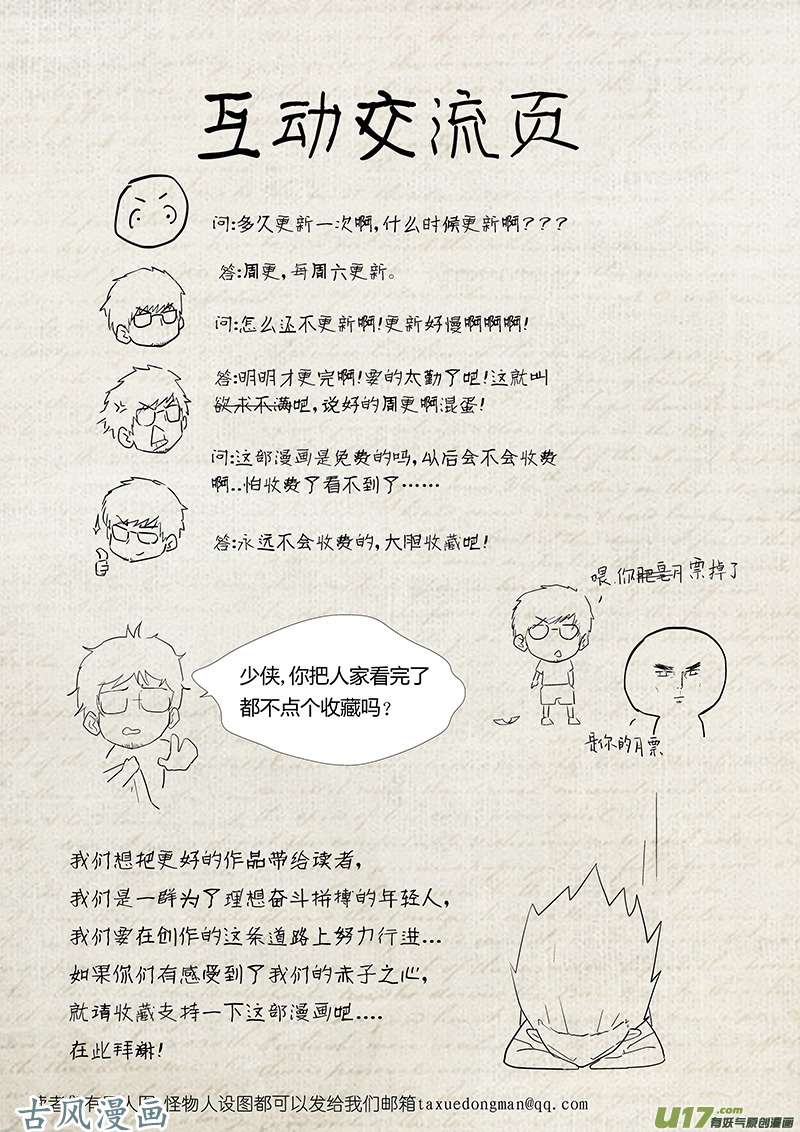 互动交流页
问:多久更新一次啊,什么时候更新啊???
答:周更,每周六更新。
问:怎么还不更新啊!更新好慢啊啊啊!
答:明明才更完啊!要的太勤了吧!这就叫
欲求不满吧,说好的周更啊混蛋!
问:这部漫画是免费的吗,以后会不会收费
啊..怕收费了看不到了……
答:永远不会收费的,大胆收藏吧!
喂.你月票掉了
少侠,你把人家看完了
都不点个收藏吗?
是你的月票
我们想把更好的作品带给读者,
我们是一群为了理想奋斗拼搏的年轻人,
我们要在创作的这条道路上努力行进...
如果你们有感受到了我们的赤子之心,
就请收藏支持一下这部漫画吧....
在此拜谢!
有人图 怪物人设图都可以发给我们邮箱taxuedongman@qq.com
古风漫画
U17.com
有妖气原创漫画